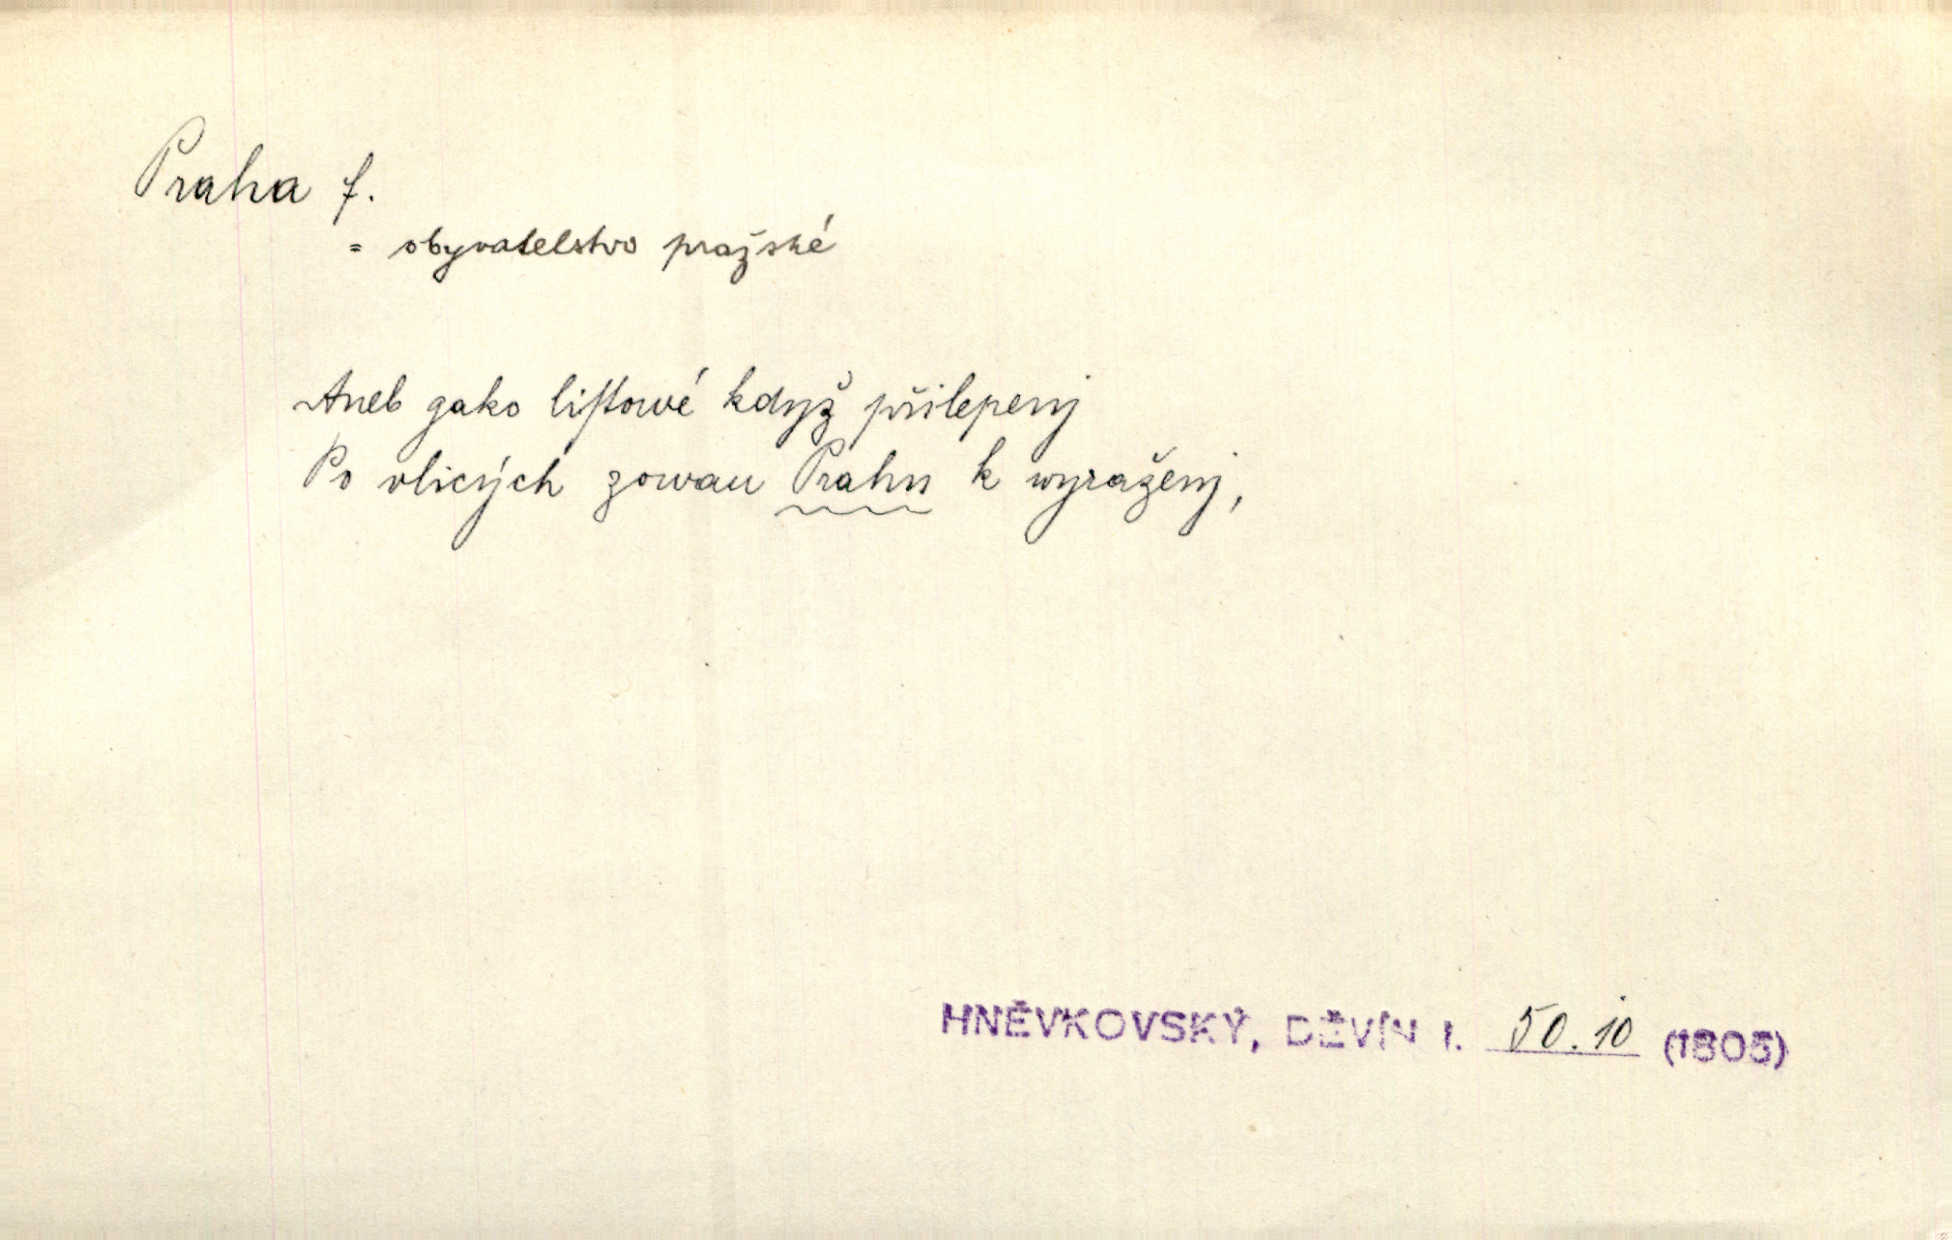 Praha f.
= obyvatelstvo pražské
Aneb gako liſtowé když přilepenj
Po vlicých zowau Prahu k wyraženj,
HNĚVKOVSKÝ, DĚVÍN I. 50.10 (1805)